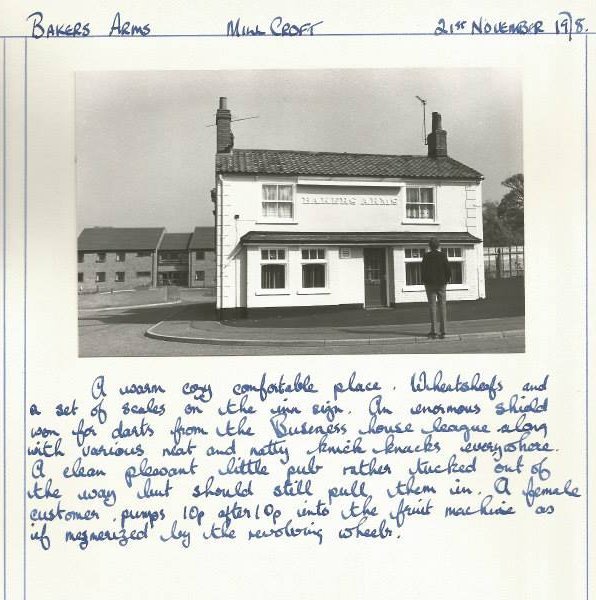 BAKERS ARMS MILL CROFT 21ST NOVEMBER 1978.
BAKERS ARMS
A warm cozy comfortable place. Wheatsheafs and
a set of scales on the inn sign. An enormous shield
won for darts from the Business house league along
with various neat and natty knick knacks everywhere.
A clean pleasant little pub rather tucked out of
the way but should still pull them in. A female
customer pumps 10p after 10p into the fruit machine as
if mezmerized by the revolving wheels.